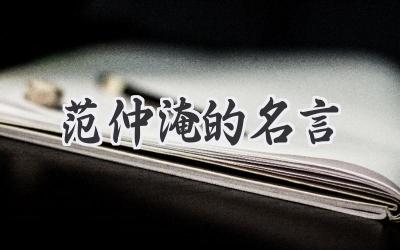 范仲淹的名言